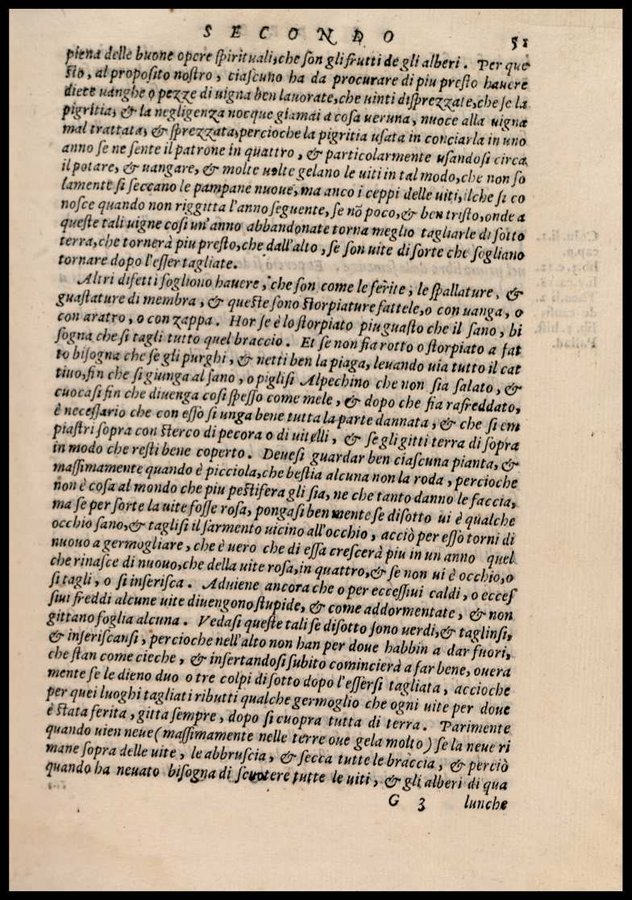 SECONDO 51
piena delle buone opere ſpirituali, che ſon gli frutti de gli alberi. Per que
ſto, al propoſito noſtro, ciaſcuno ha da procurare di piu preſto hauere
diece uanghe o pezze di uigna ben lauorate, che uinti diſprezzate, che ſe la
pigritia, & la negligenza nocque giamai a coſa ueruna, nuoce alla uigna
mal trattata, & ſprezzata, percioche la pigritia uſata in conciarla in uno
anno ſe ne ſente il patrone in quattro, & particolarmente uſandoſi circa
il potare, & uangare, & molte uolte gelano le uiti in tal modo, che non ſo
lamente ſi ſeccano le pampane nuoue, ma anco i ceppi delle uiti, ilche ſi co
noſce quando non riggitta l'anno ſeguente, ſe nõ poco, & ben triſto, onde a
queſte tali uigne coſi un'anno abbandonate torna meglio tagliarle di ſotto
terra, che tornerà piu preſto, che dall'alto, ſe ſon uite di ſorte che ſogliano
tornare dopo l'eſſer tagliate.
Altri difetti ſogliono hauere, che ſon come le ferite, le ſpallature, &
guaſtature di membra, & queſte ſono ſtorpiature fattele, o con uanga, o
con aratro, o con zappa. Hor ſe è lo ſtorpiato piu guaſto che il ſano, bi
ſogna che ſi tagli tutto quel braccio. Et ſe non ſia rotto o ſtorpiato a fat
to biſogna che ſe gli purghi, & netti ben la piaga, leuando uia tutto il cat
tiuo, fin che ſi giunga al ſano, o pigliſi Alpechino che non ſia ſalato, &
cuocaſi fin che diuenga coſi ſpeſſo come mele, & dopo che ſia rafreddato,
è neceſſario che con eſſo ſi unga bene tutta la parte dannata, & che ſi em
piaſtri ſopra con ſterco di pecora o di uitelli, & ſe gli gitti terra di ſopra
in modo che reſti bene coperto. Deueſi guardar ben ciaſcuna pianta, &
maſſimamente quando è picciola, che beſtia alcuna non la roda, percioche
non è coſa al mondo che piu peſtifera gli ſia, ne che tanto danno le faccia,
ma ſe per ſorte la uite foſſe roſa, pongaſi ben mente ſe diſotto ui è qualche
occhio ſano, & tagliſi il ſarmento uicino all'occhio, acciò per eſſo torni di
nuouo a germogliare, che è uero che di eſſa creſcerà piu in un anno quel
che rinaſce di nuouo, che della uite roſa, in quattro, & ſe non ui è occhio, o
ſi tagli, o ſi inſeriſca. Aduiene ancora che o per ecceſſiui caldi, o ecceſ
ſiui freddi alcune uite diuengono ſtupide, & come addormentate, & non
gittano foglia alcuna. Vedaſi queſte tali ſe diſotto ſono uerdi, & taglinſi,
& inſeriſcanſi, percioche nell'alto non han per doue habbin a dar fuori,
che ſtan come cieche, & inſertandoſi ſubito comincierà a far bene, ouera
mente ſe le dieno duo o tre colpi di ſotto dopo l'eſſerſi tagliata, accioche
per quei luoghi tagliati ributti qualche germoglio che ogni uite per doue
è ſtata ferita, gitta ſempre, dopo ſi cuopra tutta di terra. Parimente
quando uien neue (maſſimamente nelle terre oue gela molto) ſe la neue ri
mane ſopra delle uite, le abbruſcia, & ſecca tutte le braccia, & perciò
quando ha neuato biſogna di ſcuotere tutte le uiti, & gli alberi di qua
G 3 lunche